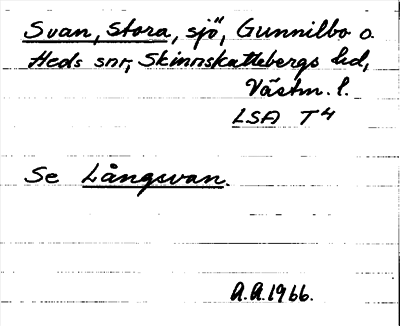 Svan, Stora, sjö, Gunnilbo o.
Heds snr, Skinnskattebergs hd,
Västm. l.
LSA T4
Se Långsvan.
A.A. 1966.